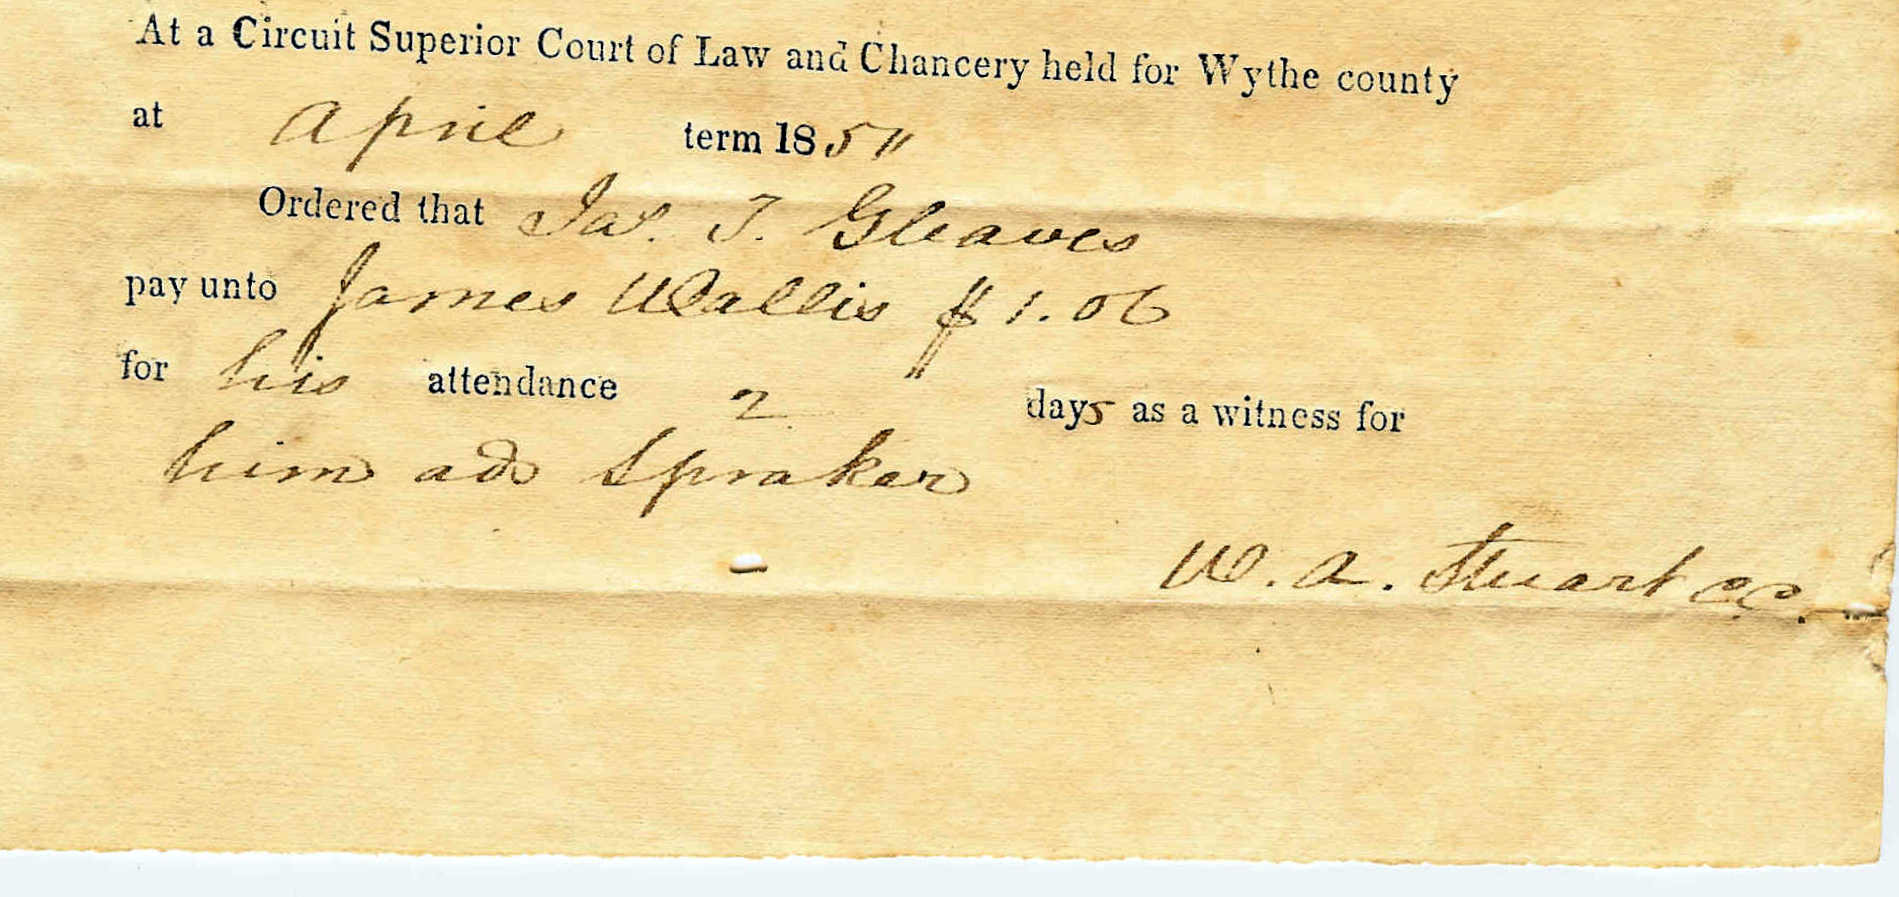 At a Circuit Superior Court of Law and Chancery held for Wythe county
at April term 185"
Ordered that Jas. T. Gleaves
pay unto James Wallis $1.06
for his attendance 2 days as a witness for
him ads Spraker
W. A. Stuart CC.